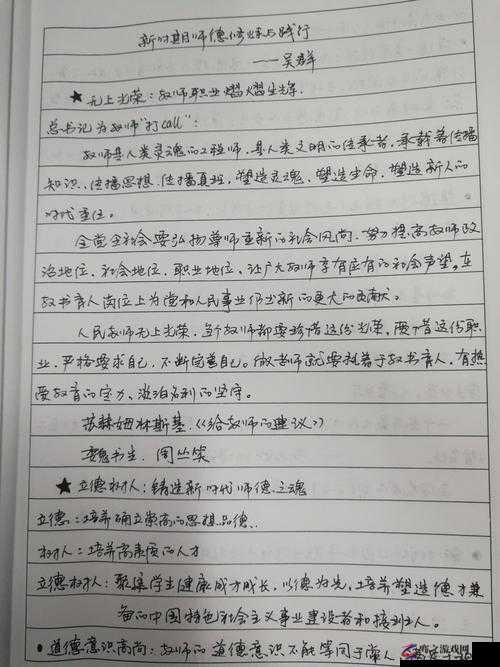 新时期师德修养与践行
——吴群
★无上光荣：教师职业熠熠生辉.
总书记为教师"打call"：
教师是人类灵魂的工程师，是人类文明的传承者，承载着传播
知识、传播思想、传播真理，塑造灵魂、塑造生命、塑造新人的
时代重任。
全党全社会要弘扬尊师重教的社会风尚，努力提高教师政
治地位、社会地位、职业地位，让广大教师享有应有的社会声望，在
教书育人岗位上为党和人民事业作出新的更大的贡献。
人民教师无上光荣，每个教师都要珍惜这份光荣，要惜这份职
业，严格要求自己，不断完善自己。做老师就要执着于教书育人，有热
爱教育的定力、淡泊名利的坚守。
苏霍姆林斯基.《给教师的建议》
魏书生.
★立德树人：铸造新时代师德之魂
立德：培养确立崇高的思想品德.
树人：培养高素质的人才
立德树人：聚集学生健康成才成长，以德为先，培养塑造德才兼
备的中国特色社会主义事业建设者和接班人。
●道德意识高尚：教师的道德意识不能等同于常人，
游戏网